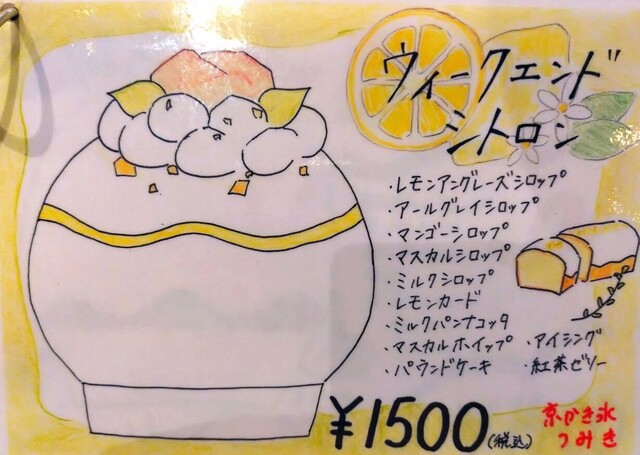 ウィークエンド
シトロン
・レモンアングレーズシロップ
・アールグレイシロップ
・マンゴーシロップ
・マスカルシロップ
・ミルクシロップ
・レモンカード
・ミルクパンナコッタ
・マスカルホイップ
・パウンドケーキ
・アイシング
・紅茶ゼリー
¥1500(税込)
京かき氷
つみき